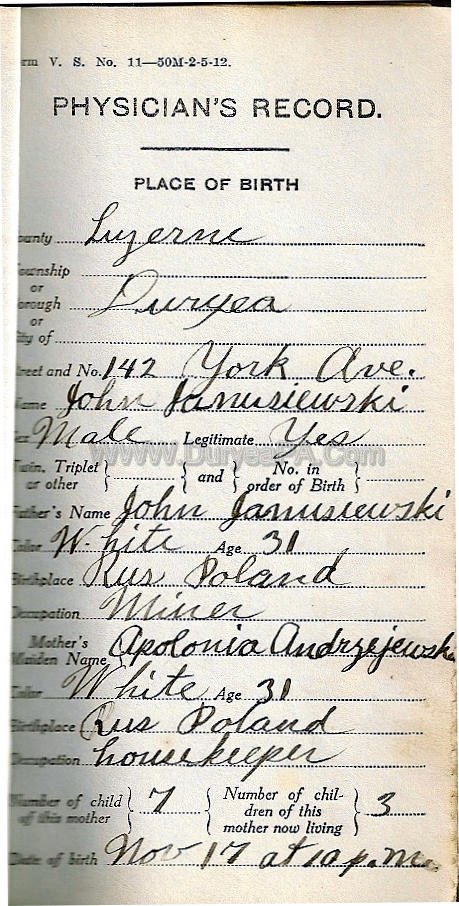 rm V. S. No. 11—50M-2-5-12.
PHYSICIAN'S RECORD.
PLACE OF BIRTH
ounty Luzerne
ownship
or
orough Duryea
or
ity of
treet and No. 142 York Ave.
ame John Janusiewski
ex Male Legitimate Yes
www.DuryeaPA.com
Twin, Triplet or other } and { No. in order of Birth }
ather's Name John Janusiewski
Color White Age 31
Birthplace Rus Poland
Occupation Miner
Mother's Maiden Name Apolonia Andrzejewski
Color White Age 31
Birthplace Rus Poland
Occupation housekeeper
Number of child of this mother } 7 { Number of chil-
dren of this
mother now living } 3
Date of birth Nov 17 at 10 p.m.